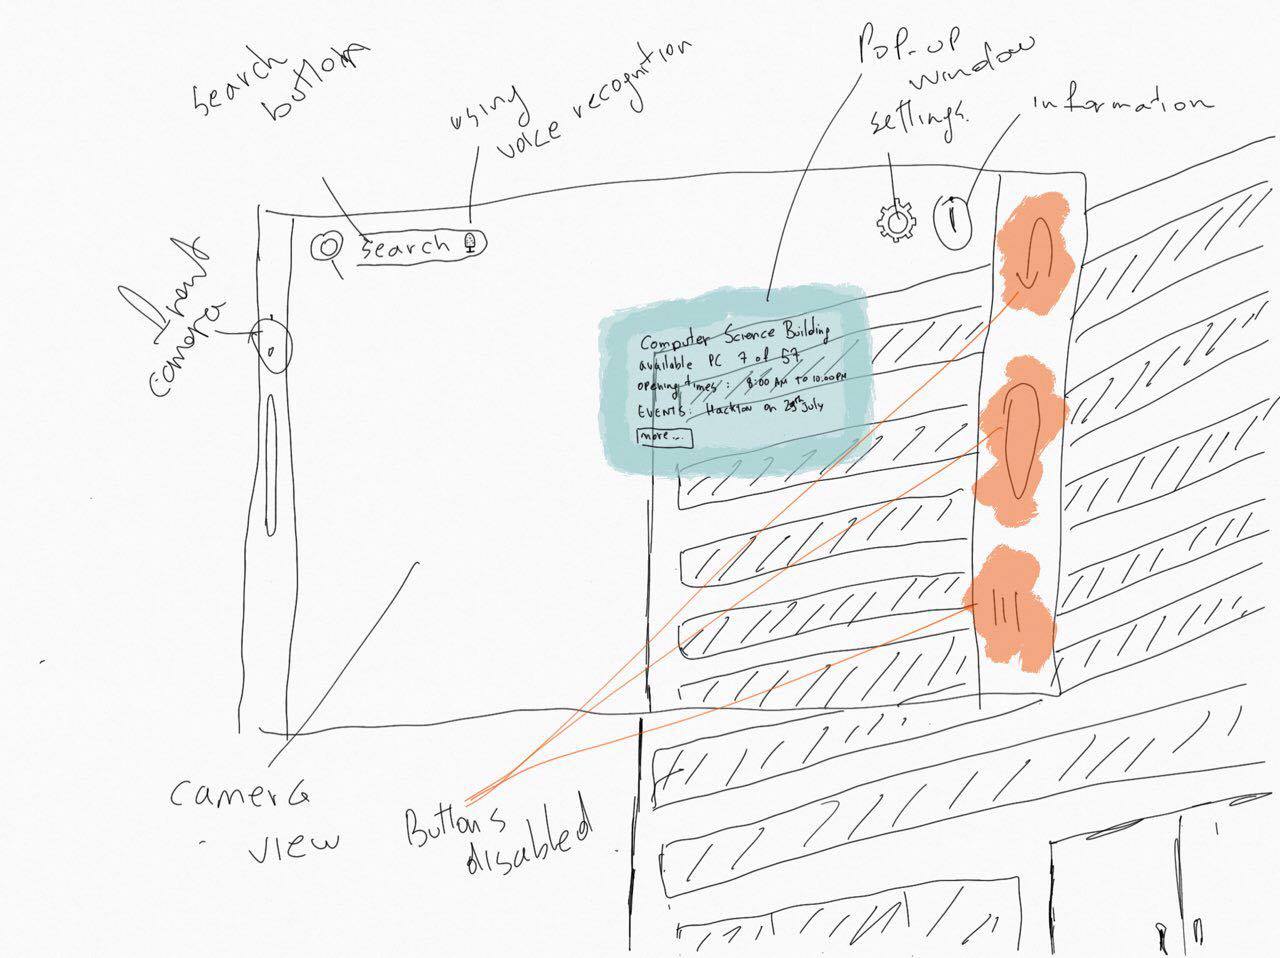 search
button
using
voice recognition
Pop-up
window
settings.
information
front
camera
search
Computer Science Building
available PC 7 of 57
opening times: 8:00 AM to 10.00PM
EVENTS: Hackton on 29th July
more...
camera
view
Buttons
disabled